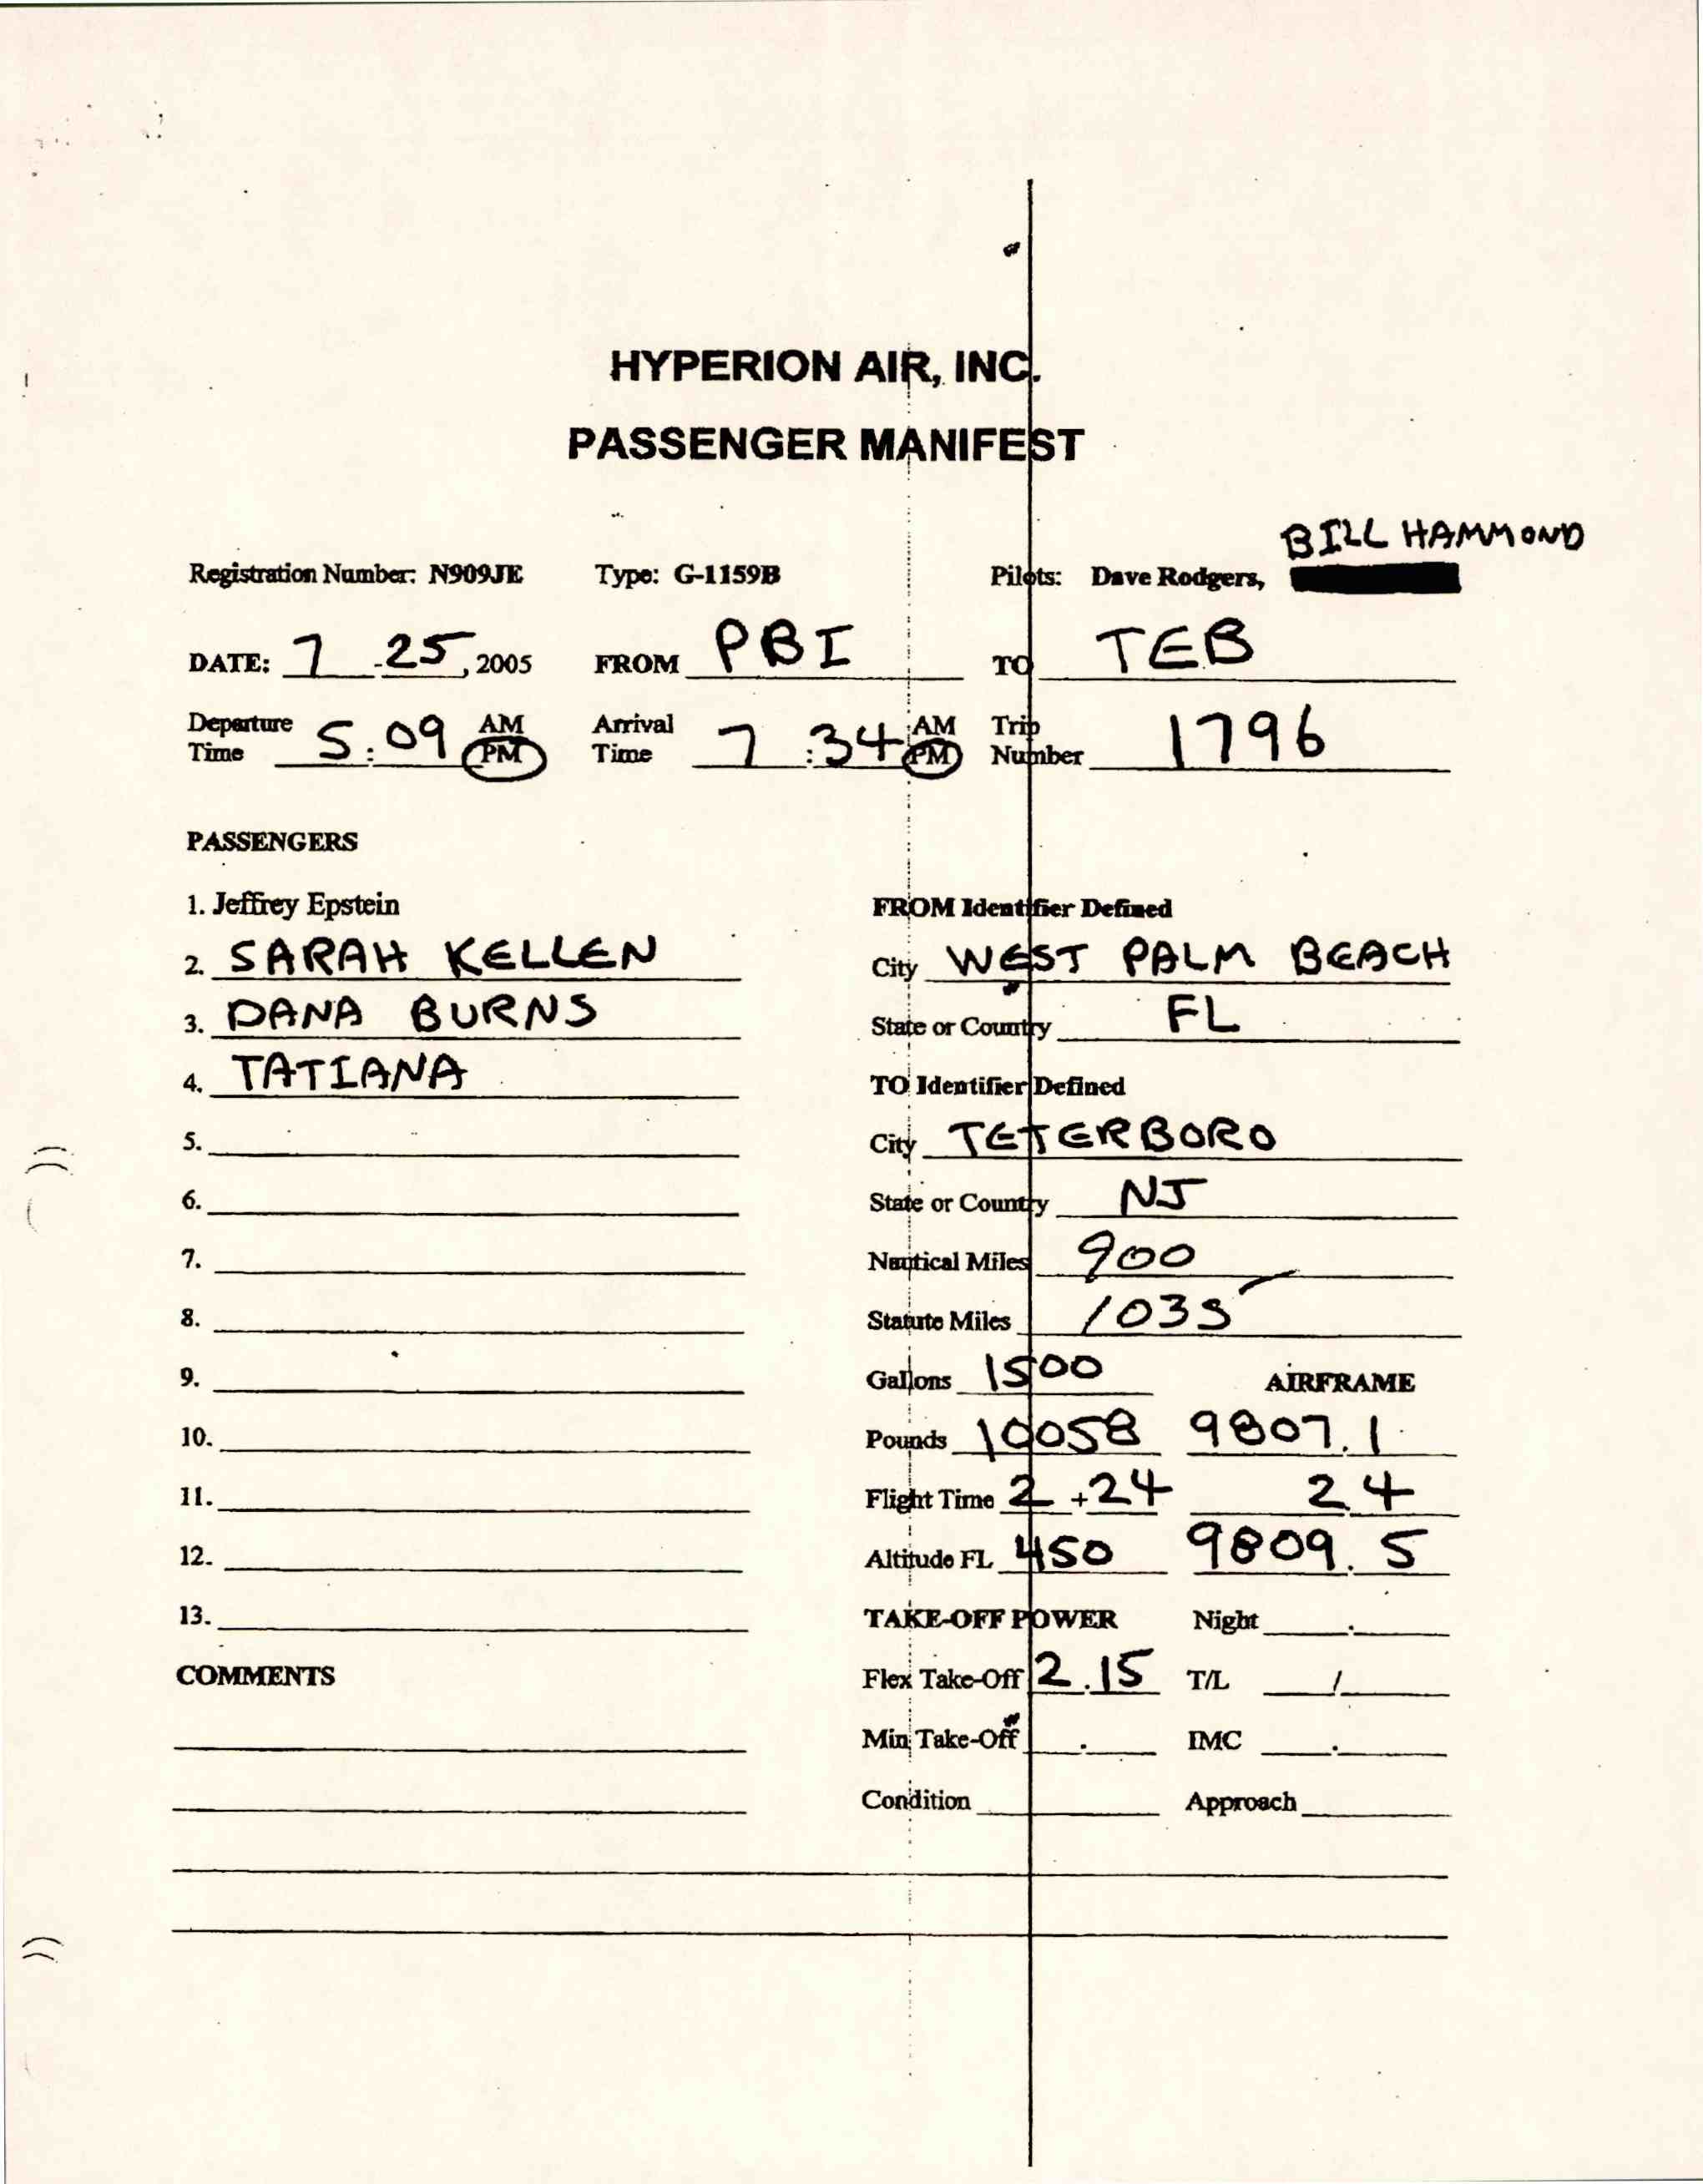 HYPERION AIR, INC.
PASSENGER MANIFEST
BILL HAMMOND
Registration Number: N909JE Type: G-1159B Pilots: Dave Rodgers,
DATE: 7 - 25, 2005 FROM PBI TO TEB
Departure Time 5:09 AM PM Arrival Time 7:34 AM PM Trip Number 1796
PASSENGERS
1. Jeffrey Epstein FROM Identifier Defined
2. SARAH KELLEN City WEST PALM BEACH
3. DANA BURNS State or Country FL
4. TATIANA TO Identifier Defined
5. City TETERBORO
6. State or Country NJ
7. Nautical Miles 900
8. Statute Miles 1035
9. Gallons 1500 AIRFRAME
10. Pounds 10058 9807.1
11. Flight Time 2 + 24 2.4
12. Altitude FL 450 9809.5
13. TAKE-OFF POWER Night .
COMMENTS Flex Take-Off 2.15 T/L /
Min Take-Off . IMC .
Condition Approach